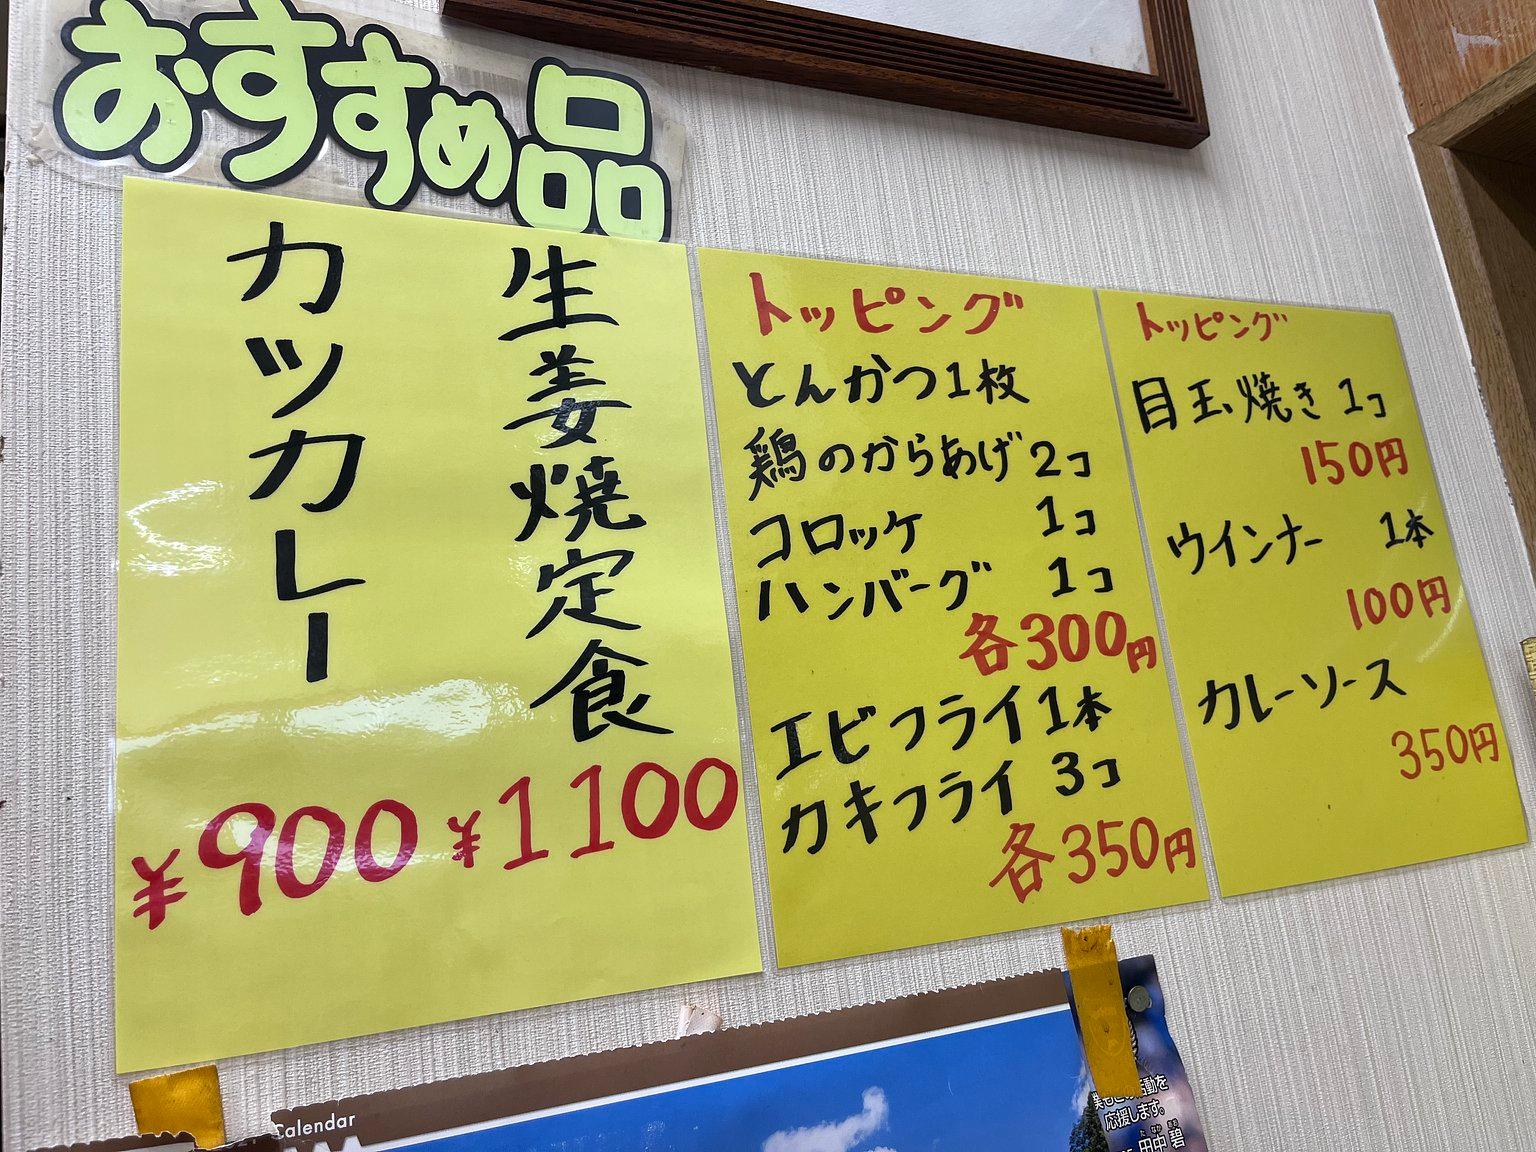 おすすめ品
生姜焼定食
¥1100
カツカレー
¥900
トッピング
とんかつ1枚
鶏のからあげ2コ
コロッケ 1コ
ハンバーグ 1コ
各300円
エビフライ1本
カキフライ 3コ
各350円
トッピング
目玉焼き 1コ
150円
ウインナー 1本
100円
カレーソース
350円
Calendar
応援します。
田中 碧